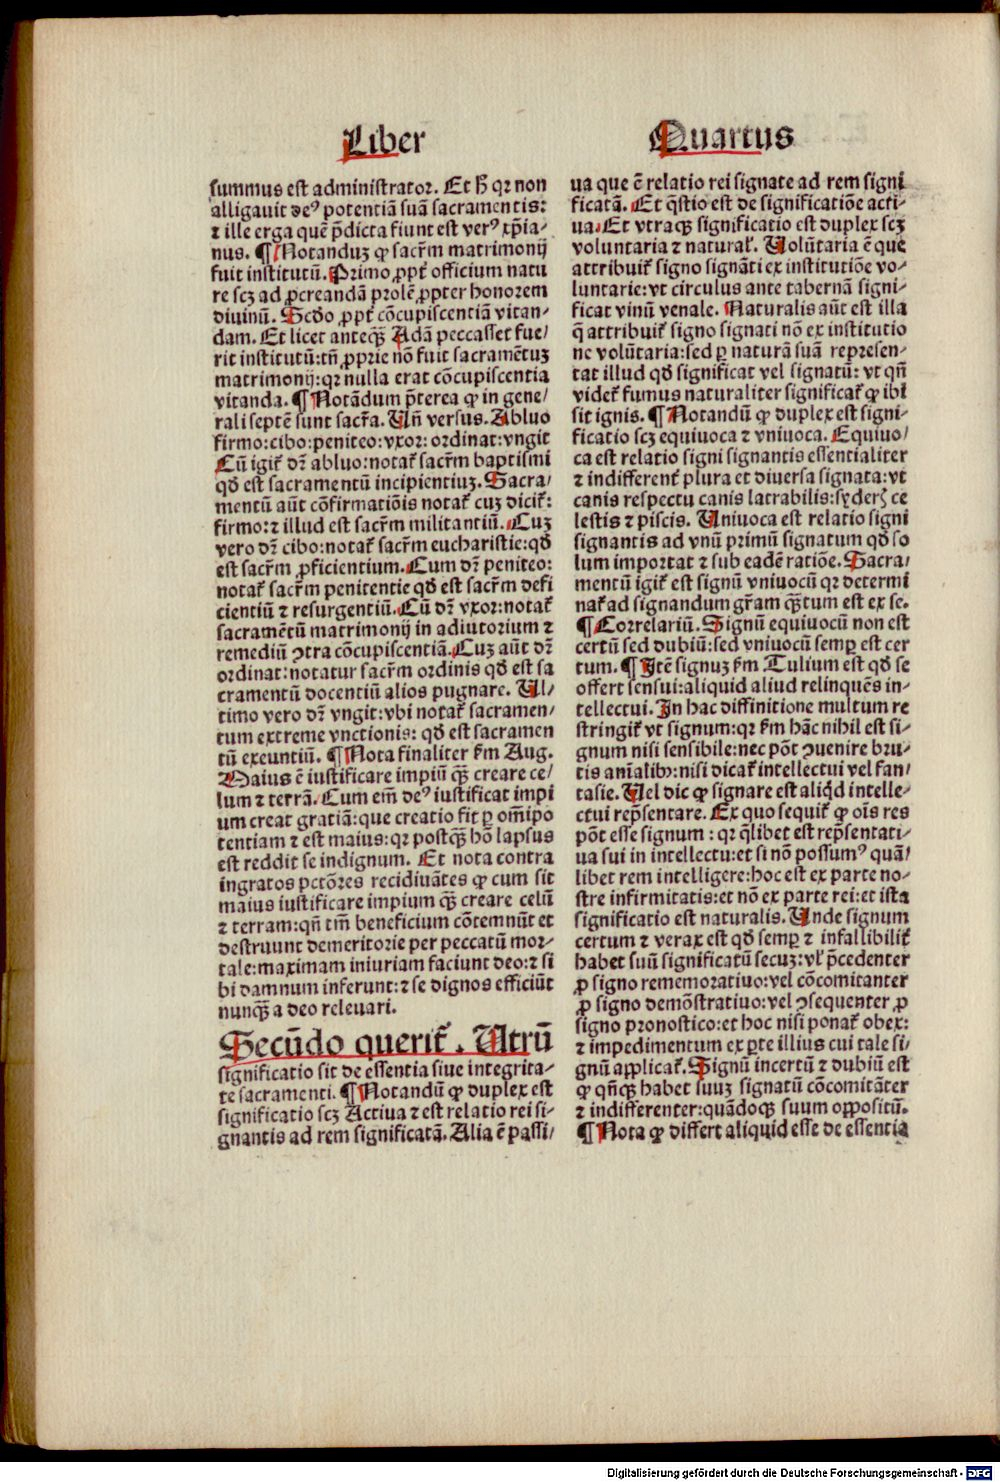 Liber
Quartus
summus est administrator. Et hͦ qꝛ non
alligauit deꝰ potentiã suã sacramentis:
⁊ ille erga quẽ p̃dicta fiunt est verꝰ xp̃ia-
nus. ¶ Notanduꝫ ꝙ sacr̃m matrimonij
fuit institutũ. Primo ꝓpt̉ officium natu
re scꝫ ad ꝓcreandã prolẽ ꝓpter honorem
diuinũ. Scd̃o ꝓpt̉ cõcupiscentiã vitan-
dam. Et licet anteqꝫ̃ Adã peccasset fue/
rit institutũ: tñ ꝓprie nõ fuit sacramẽtuꝫ
matrimonij: qꝛ nulla erat cõcupiscentia
vitanda. ¶ Notãdum p̃terea ꝙ in gene/
rali septẽ sunt sacr̃a. Vñ versus. Abluo
firmo: cibo: peniteo: vxor: ordinat: vngit
Cũ igit̉ dꝛ̃ abluo: notat̉ sacr̃m baptismi
qd̃ est sacramentũ incipientiuꝫ. Sacra/
mentũ aũt cõfirmatiõis notat̉ cuꝫ dicit̉:
firmo: ⁊ illud est sacr̃m militantiũ. Cuꝫ
vero dꝛ̃ cibo: notat̉ sacr̃m eucharistie: qd̃
est sacr̃m ꝓficientium. Cum dꝛ̃ peniteo:
notat̉ sacr̃m penitentie qd̃ est sacr̃m defi
cientiũ ⁊ resurgentiũ. Cũ dꝛ̃ vxor: notat̉
sacramẽtũ matrimonij in adiutorium ⁊
remediũ ꝯtra cõcupiscentiã. Cuꝫ aũt dꝛ̃
ordinat: notatur sacr̃m ordinis qd̃ est sa
cramentũ docentiũ alios pugnare. Vl/
timo vero dꝛ̃ vngit: vbi notat̉ sacramen/
tum extreme vnctionis: qd̃ est sacramen
tũ exeuntiũ. ¶ Nota finaliter ẜm Aug.
Maius ẽ iustificare impiũ qꝫ̃ creare ce/
lum ⁊ terrã. Cum em̃ deꝰ iustificat impi
um creat gratiã: que creatio fit ꝑ om̃ipo
tentiam ⁊ est maius: qꝛ postqꝫ̃ hõ lapsus
est reddit se indignum. Et nota contra
ingratos pctõres recidiuãtes ꝙ cum sit
maius iustificare impium qꝫ̃ creare celũ
⁊ terram: qñ tm̃ beneficium cõtemnũt et
destruunt demeritorie per peccatũ mor-
tale: maximam iniuriam faciunt deo: ⁊ si
bi damnum inferunt: ⁊ se dignos efficiũt
nunqꝫ̃ a deo releuari.
Secũdo querit̉. Vtrũ
significatio sit de essentia siue integrita-
te sacramenti. ¶ Notandũ ꝙ duplex est
significatio scꝫ Actiua ⁊ est relatio rei si-
gnantis ad rem significatã. Alia ẽ passi/
ua que ẽ relatio rei signate ad rem signi
ficatã. Et q̃stio est de significatiõe acti-
ua. Et vtraqꝫ significatio est duplex scꝫ
voluntaria ⁊ natural̉. Volũtaria ẽ que
attribuit̉ signo signãti ex institutiõe vo-
luntarie: vt circulus ante tabernã signi-
ficat vinũ venale. Naturalis aũt est illa
q̃ attribuit̉ signo signati nõ ex institutio
ne volũtaria: sed ꝑ naturã suã represen-
tat illud qd̃ significat vel signatũ: vt qñ
videt̉ fumus naturaliter significat̉ ꝙ ibi
sit ignis. ¶ Notandũ ꝙ duplex est signi-
ficatio scꝫ equiuoca ⁊ vniuoca. Equiuo/
ca est relatio signi signantis essentialiter
⁊ indifferent̉ plura et diuersa signata: vt
canis respectu canis latrabilis: syderꝭ ce
lestis ⁊ piscis. Vniuoca est relatio signi
signantis ad vnũ primũ signatum qd̃ so
lum importat ⁊ sub eadẽ ratiõe. Sacra/
mentũ igit̉ est signũ vniuocũ qꝛ determi
nat̉ ad signandum gr̃am qꝫ̃tum est ex se.
¶ Correlariũ. Signũ equiuocũ non est
certũ sed dubiũ: sed vniuocũ semꝑ est cer
tum. ¶ Itẽ signuꝫ ẜm Tulium est qd̃ se
offert sensui: aliquid aliud relinquẽs in-
tellectui. In hac diffinitione multum re
stringit̉ vt signum: qꝛ ẜm hãc nihil est si-
gnum nisi sensibile: nec põt ꝯuenire bru-
tis anĩalibꝫ: nisi dicat̉ intellectui vel fan/
tasie. Vel dic ꝙ signare est aliq̃d intelle-
ctui rep̃sentare. Ex quo sequit̉ ꝙ oĩs res
põt esse signum: qꝛ q̃libet est rep̃sentati-
ua sui in intellectu: et si nõ possumꝰ quã/
libet rem intelligere: hoc est ex parte no-
stre infirmitatis: et nõ ex parte rei: et ista
significatio est naturalis. Vnde signum
certum ⁊ verax est qd̃ semꝑ ⁊ infallibilit̉
habet suũ significatũ secuꝫ: vl̉ p̃cedenter
ꝓ signo rememoratiuo: vel cõcomitanter
ꝓ signo demõstratiuo: vel ꝯsequenter ꝓ
signo pronostico: et hoc nisi ponat̉ obex:
⁊ impedimentum ex ꝑte illius cui tale si-
gnũ applicat̉. Signũ incertũ ⁊ dubiũ est
ꝙ qñqꝫ habet suuꝫ signatũ cõcomitãter
⁊ indifferenter: quãdoqꝫ suum oppositũ.
¶ Nota ꝙ differt aliquid esse de essentia
Digitalisierung gefördert durch die Deutsche Forschungsgemeinschaft - DFG